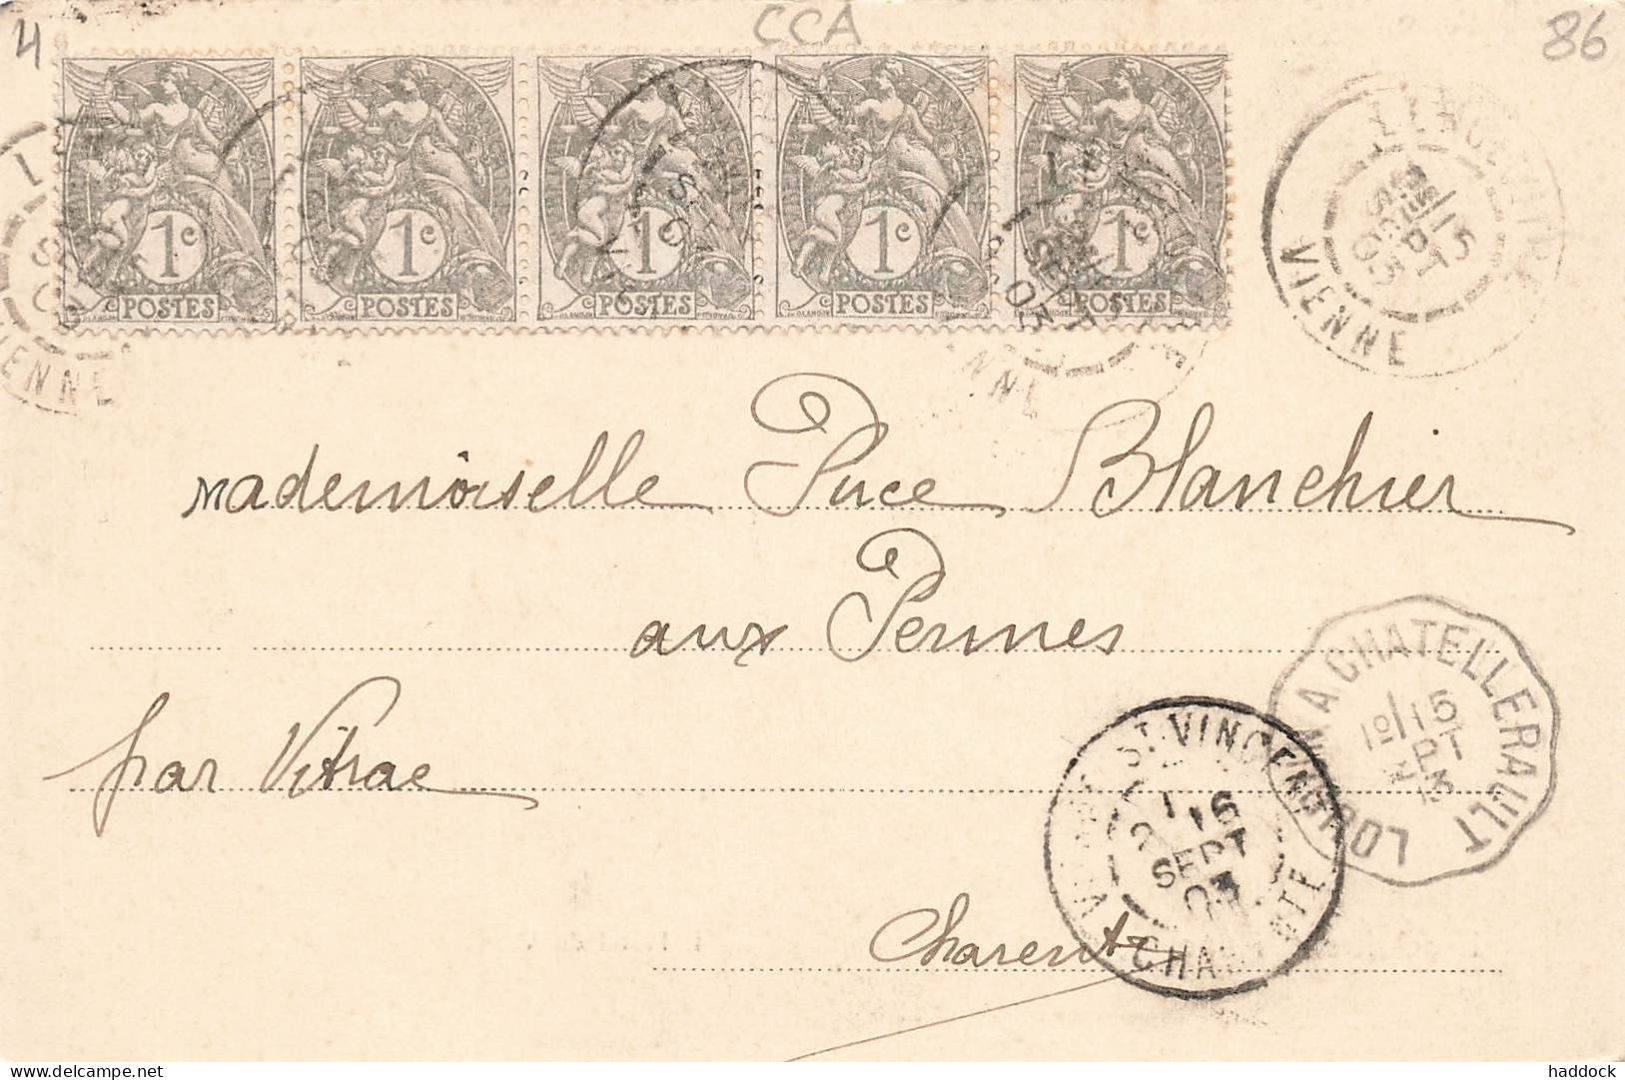 4 CCA 86
1c 1c 1c 1c 1c
POSTES POSTES POSTES POSTES POSTES
15
SEPT
03
VIENNE
Mademoiselle Puce Blanchier
aux Pennes
par Vitrac
Charente
LOUDUN A CHATELLERAULT
15
ST VINCENT
16
SEPT
03
CHARENTE
www.delcampe.net
haddock